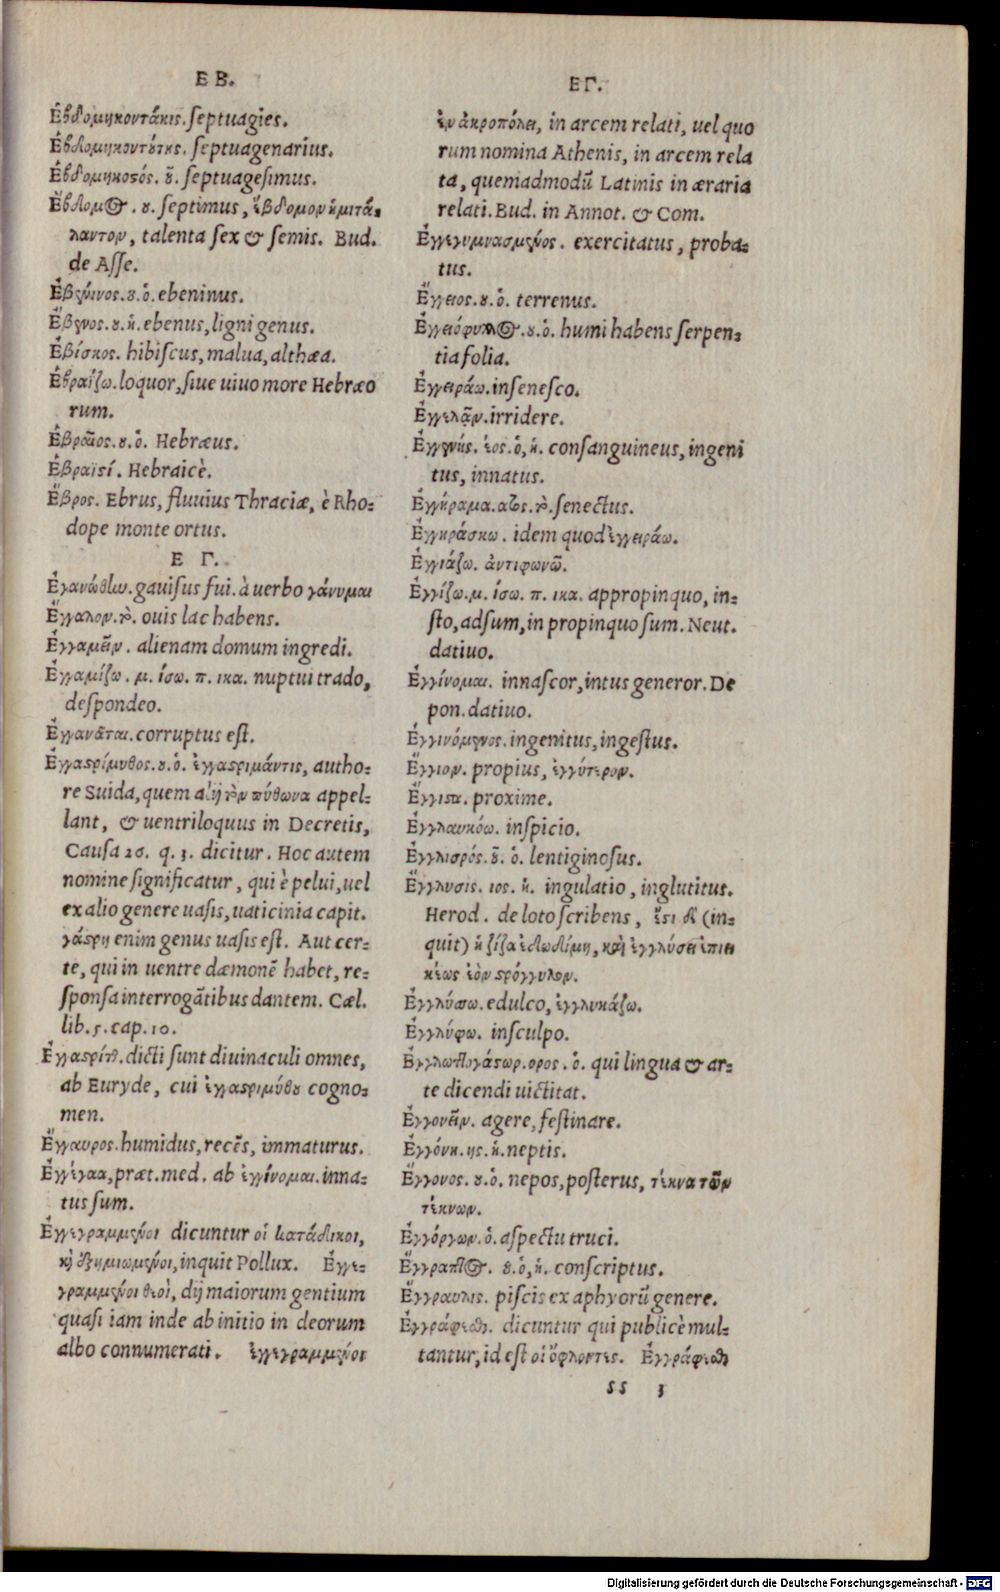 ΕΒ.
Ἑβδομηκοντάκις. septuagies.
Ἑβδομηκοντούτης. septuagenarius.
Ἑβδομηκοστός. οῦ. septuagesimus.
Ἕβδομος. ου. septimus, ἕβδομον ἡμιτά-
λαντον, talenta sex & semis. Bud.
de Asse.
Ἐβένινος. ου. ὁ. ebeninus.
Ἔβενος. ου. ἡ. ebenus, ligni genus.
Ἐβίσκος. hibiscus, malua, althæa.
Ἑβραΐζω. loquor, siue uiuo more Hebræo
rum.
Ἑβραῖος. ου. ὁ. Hebræus.
Ἑβραϊσί. Hebraicè.
Ἕβρος. Ebrus, fluuius Thraciæ, è Rho-
dope monte ortus.
Ε Γ.
Ἐγανώθην. gauisus fui. à uerbo γάνυμαι
Ἔγγαλον. τὸ. ouis lac habens.
Ἐγγαμεῖν. alienam domum ingredi.
Ἐγγαμίζω. μ. ίσω. π. ικα. nuptui trado,
despondeo.
Ἐγγανᾶται. corruptus est.
Ἐγγαστρίμυθος. ου. ὁ. ἐγγαστριμάντις, autho-
re Suida, quem alij τὸν πύθωνα appel-
lant, & uentriloquus in Decretis,
Causa 26. q. 3. dicitur. Hoc autem
nomine significatur, qui è pelui, uel
ex alio genere uasis, uaticinia capit.
γάστρη enim genus uasis est. Aut cer-
te, qui in uentre dæmonẽ habet, re-
sponsa interrogãtibus dantem. Cæl.
lib. 5. cap. 10.
dicti sunt diuinaculi omnes,
ab Euryde, cui ἐγγαστριμύθου cogno-
men.
Ἔγγαυρος. humidus, recẽs, immaturus.
Ἐγγέγαα, præt. med. ab ἐγγίνομαι. inna-
tus sum.
Ἐγγεγραμμένοι dicuntur οἱ κατάδικοι,
καὶ ἐζημιωμένοι, inquit Pollux. Ἐγγε-
γραμμένοι θεοὶ, dij maiorum gentium
quasi iam inde ab initio in deorum
albo connumerati. ἐγγεγραμμένοι
ΕΓ.
ἐν ἀκροπόλει, in arcem relati, uel quo
rum nomina Athenis, in arcem rela
ta, quemadmodũ Latinis in æraria
relati. Bud. in Annot. & Com.
Ἐγγεγυμνασμένος. exercitatus, proba-
tus.
Ἔγγειος. ου. ὁ. terrenus.
Ἐγγειόφυλλος. ου. ὁ. humi habens serpen-
tia folia.
Ἐγγειράω. insenesco.
Ἐγγελᾶν. irridere.
Ἐγγενής. έος. ὁ, ἡ. consanguineus, ingeni
tus, innatus.
Ἐγγήραμα. ατος. τὸ. senectus.
Ἐγγηράσκω. idem quod ἐγγειράω.
Ἐγγιάζω. ἀντιφωνῶ.
Ἐγγίζω. μ. ίσω. π. ικα. appropinquo, in-
sto, adsum, in propinquo sum. Neut.
datiuo.
Ἐγγίνομαι. innascor, intus generor. De
pon. datiuo.
Ἐγγινόμενος. ingenitus, ingestus.
Ἔγγιον. propius, ἐγγύτερον.
Ἔγγιστα. proxime.
Ἐγγλαυκόω. inspicio.
Ἐγγλισρός. οῦ. ὁ. lentiginosus.
Ἔγγλυσις. ιος. ἡ. ingulatio, inglutitus.
Herod. de loto scribens, ἔστι δὲ (in-
quit) ἡ ῥίζα ἐδωδίμη, καὶ ἐγγλύσει ἐπιει
κέως ἐὸν στρόγγυλον.
Ἐγγλύσσω. edulco, ἐγγλυκάζω.
Ἐγγλύφω. insculpo.
Ἐγγλωττογάστωρ. ορος. ὁ. qui lingua & ar-
te dicendi uictitat.
Ἐγγονεῖν. agere, festinare.
Ἐγγόνη. ης. ἡ. neptis.
Ἔγγονος. ου. ὁ. nepos, posterus, τέκνα τῶν
τέκνων.
Ἐγγόργων. ὁ. aspectu truci.
Ἔγγραπτος. ου. ὁ, ἡ. conscriptus.
Ἔγγραυλις. piscis ex aphyorũ genere.
Ἐγγράφεσθαι. dicuntur qui publicè mul-
tantur, id est οἱ ὄφλοντες. Ἐγγράφεσθαι
ss 3
Digitalisierung gefördert durch die Deutsche Forschungsgemeinschaft - DFG